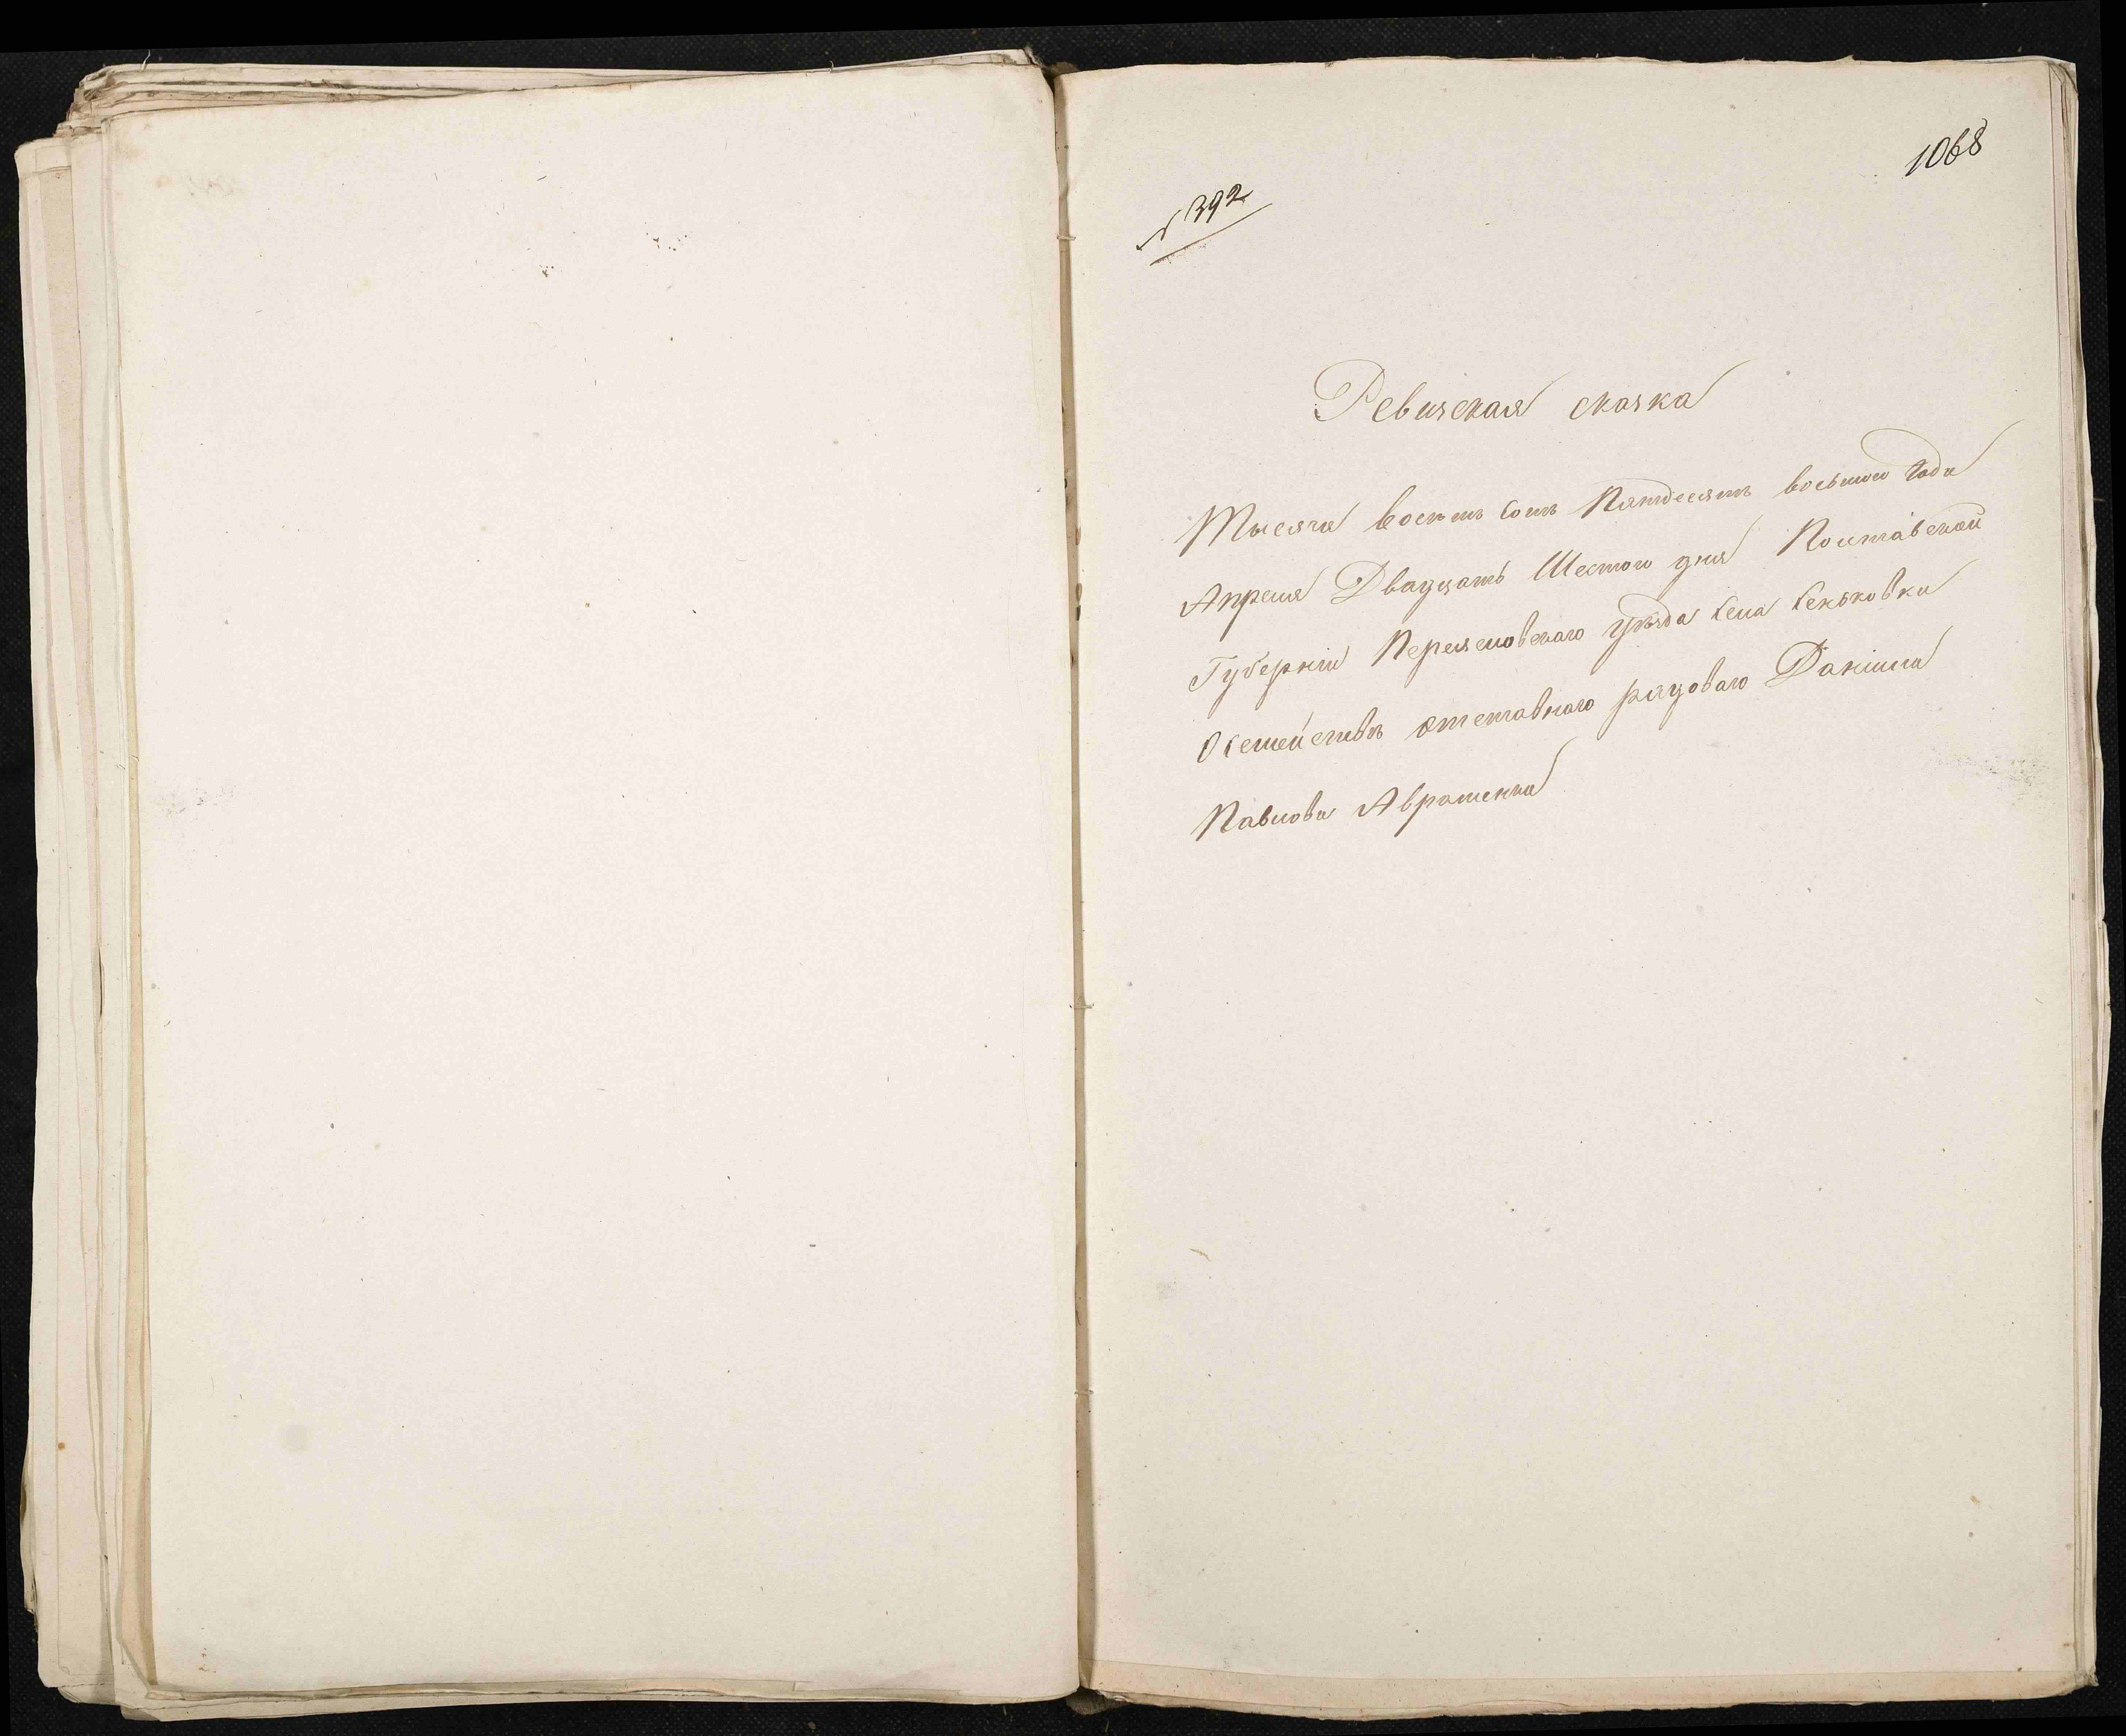 1068
№ 392
Ревизская сказка
Тысяча восемь сотъ Пятдесятъ восьмого Года
Апреля Двадцать Шестого дня Полтавской
Губерніи Переясловскаго уѣзда Села Сеньковки
О семействѣ отставнаго рядоваго Даніила
Павлова Авраменка